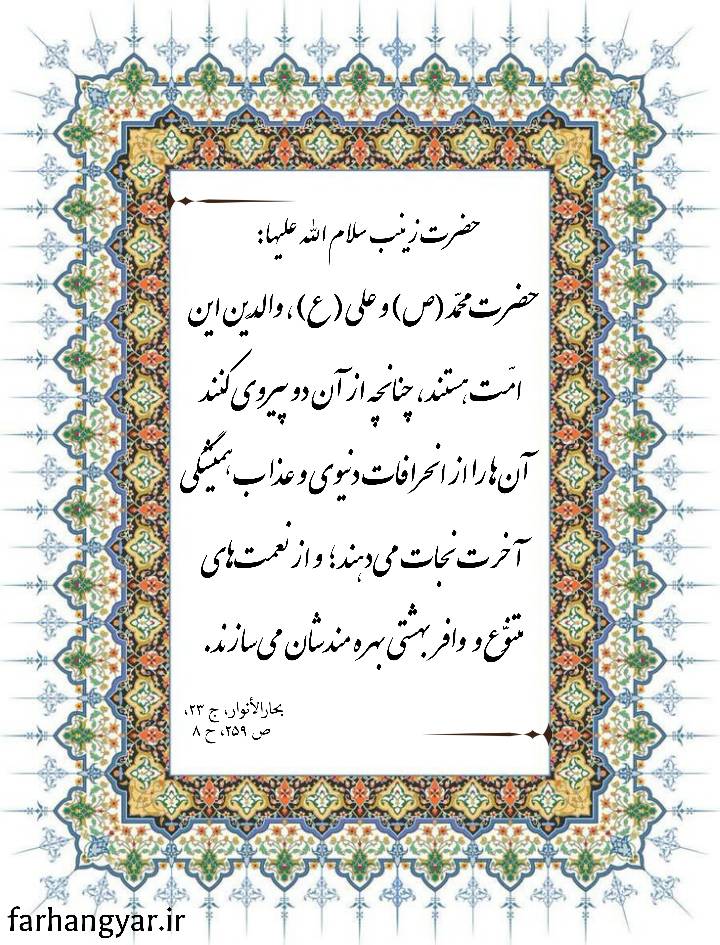 حضرت زینب سلام الله علیها:
حضرت محمّد (ص) و علی (ع)، والدین این
امّت هستند، چنانچه از آن دو پیروی کنند
آن ها را از انحرافات دنیوی و عذاب همیشگی
آخرت نجات می دهند؛ و از نعمت های
متنوّع و وافر بهشتی بهره مندشان می سازند.
بحارالأنوار، ج ۲۳،
ص ۲۵۹، ح ۸
farhangyar.ir